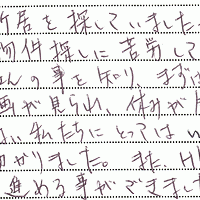 新居を探していました
物件探しに苦労して
さんの事を知り、まずは
画が見られ、休みが
、私たちにとっては
かりました。また、H
進める事ができまし